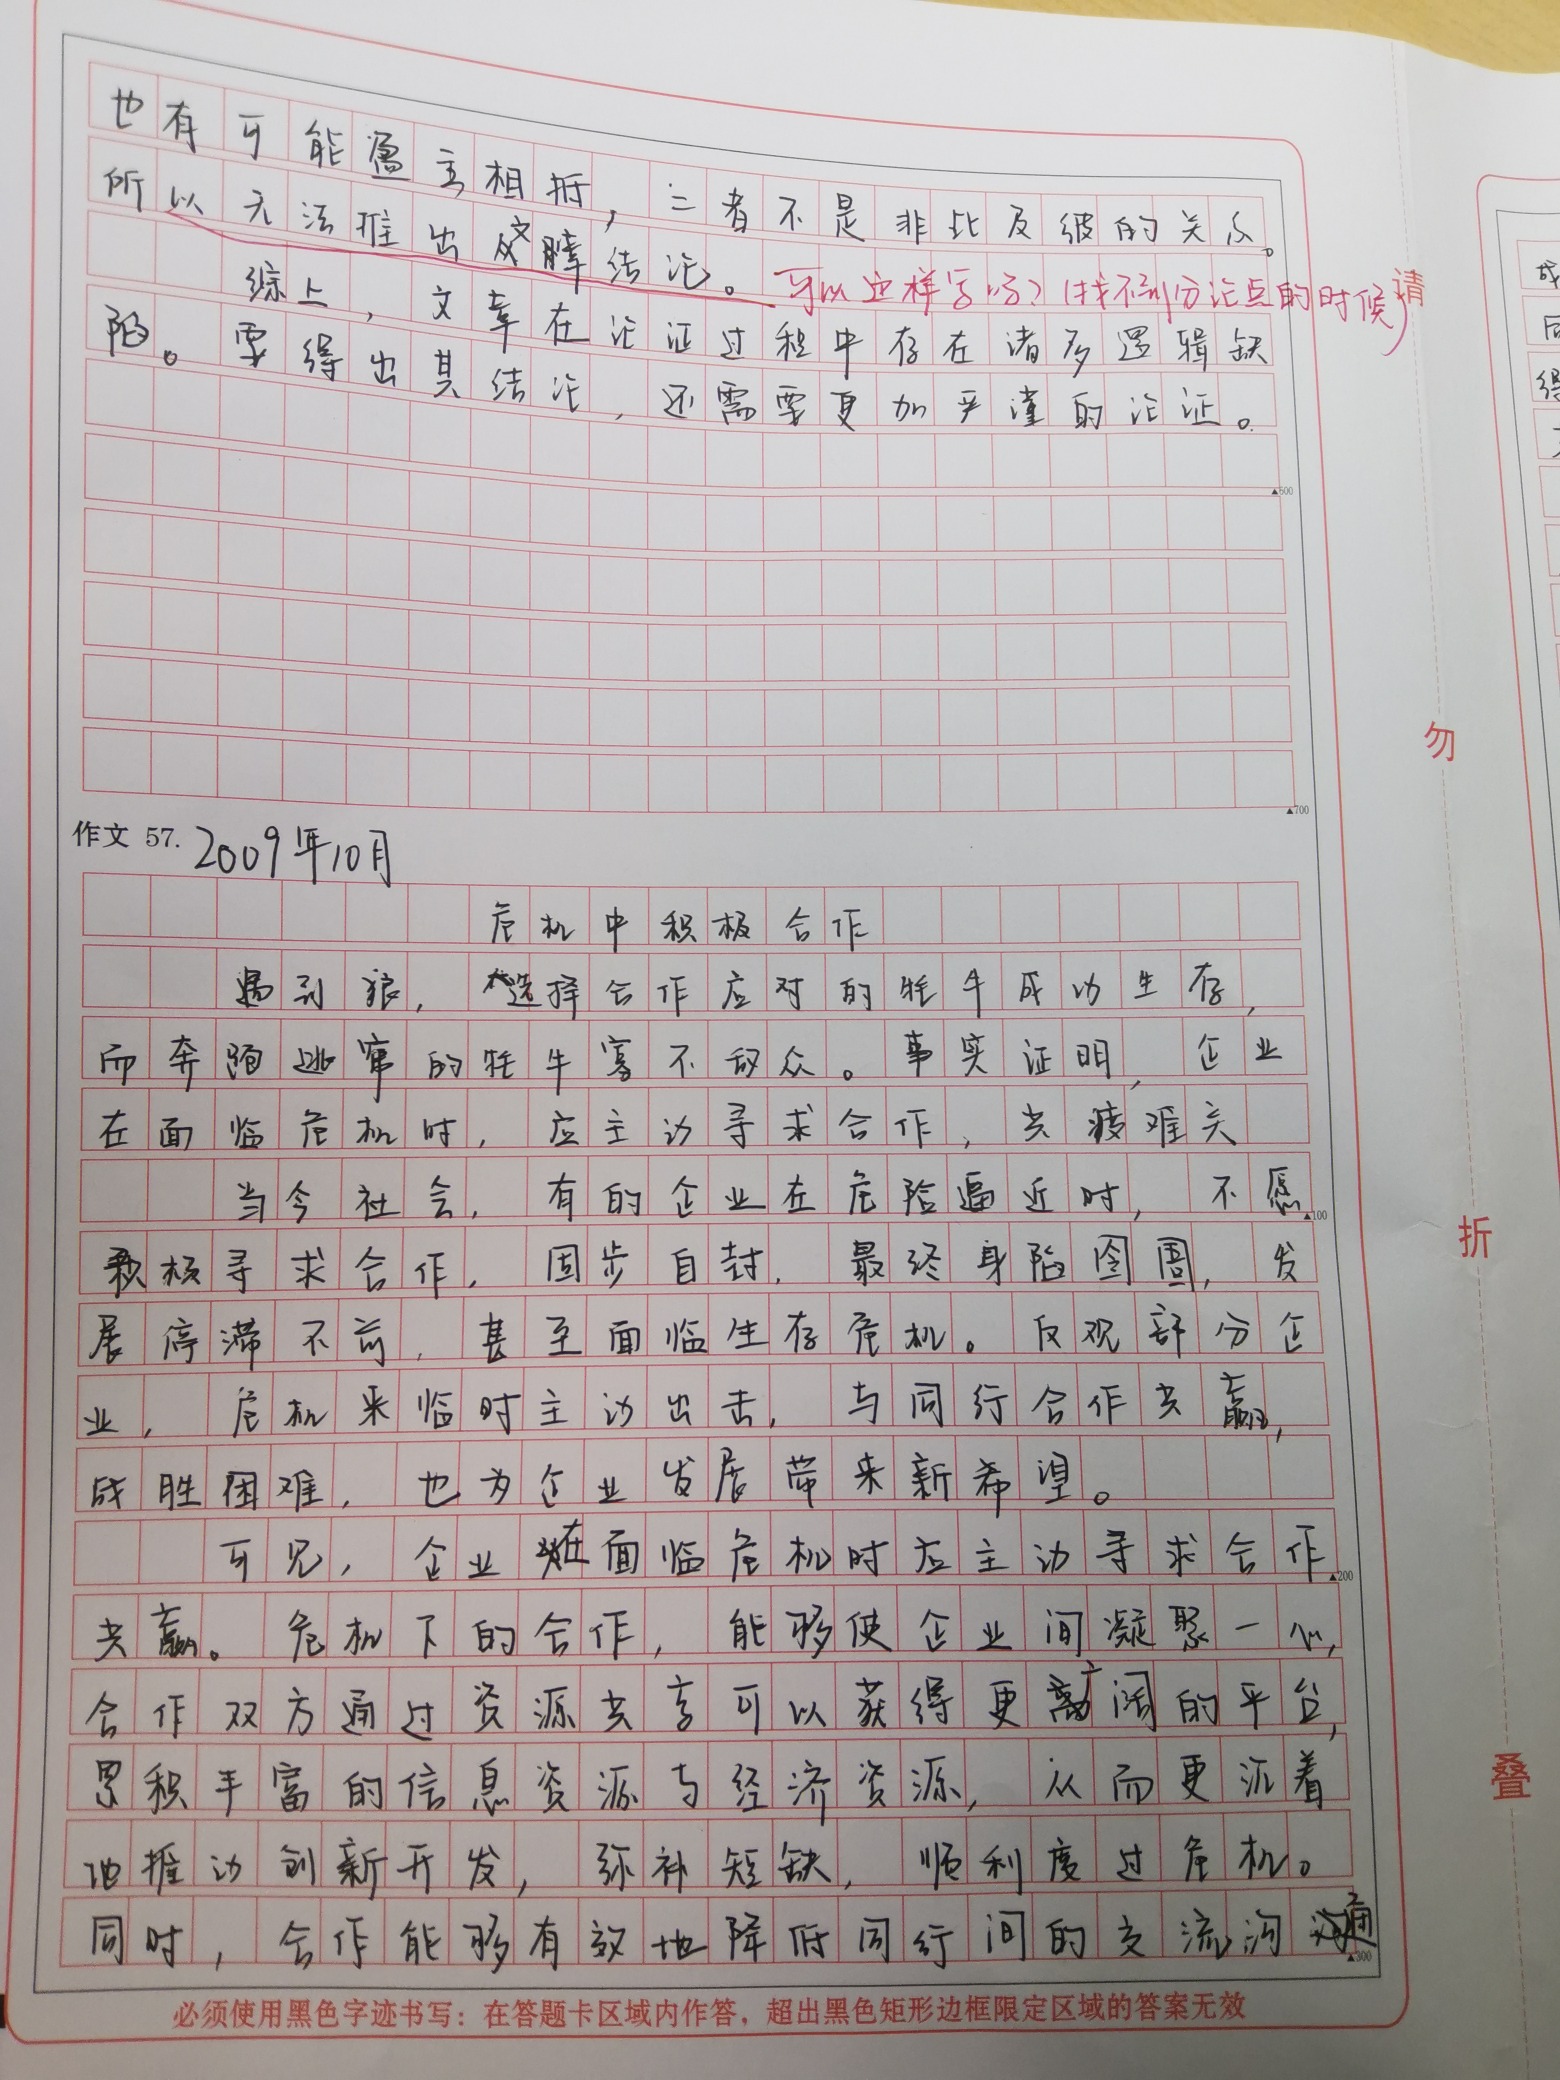 也有可能盈亏相抵，二者不是非此及彼的关系。
所以无法推出文章结论。可以这样写吗？（找不到分论点的时候）
综上，文章在论证过程中存在诸多逻辑缺
陷。要得出其结论，还需要更加严谨的论证。
▲500
▲700
作文 57. 2009年10月
危机中积极合作
遇到狼，选择合作应对的牦牛成功生存，
而奔跑逃窜的牦牛寡不敌众。事实证明，企业
在面临危机时，应主动寻求合作，共渡难关
当今社会，有的企业在危险逼近时，不愿
▲100
积极寻求合作，固步自封，最终身陷囹圄，发
展停滞不前，甚至面临生存危机。反观部分企
业，危机来临时主动出击，与同行合作共赢，
战胜困难，也为企业发展带来新希望。
可见，企业在面临危机时应主动寻求合作
▲200
共赢。危机下的合作，能够使企业间凝聚一心，
合作双方通过资源共享可以获得更广阔的平台，
累积丰富的信息资源与经济资源，从而更沉着
地推动创新开发，弥补短缺，顺利度过危机。
同时，合作能够有效地降低同行间的交流沟通
▲300
必须使用黑色字迹书写：在答题卡区域内作答，超出黑色矩形边框限定区域的答案无效
请
勿
折
叠